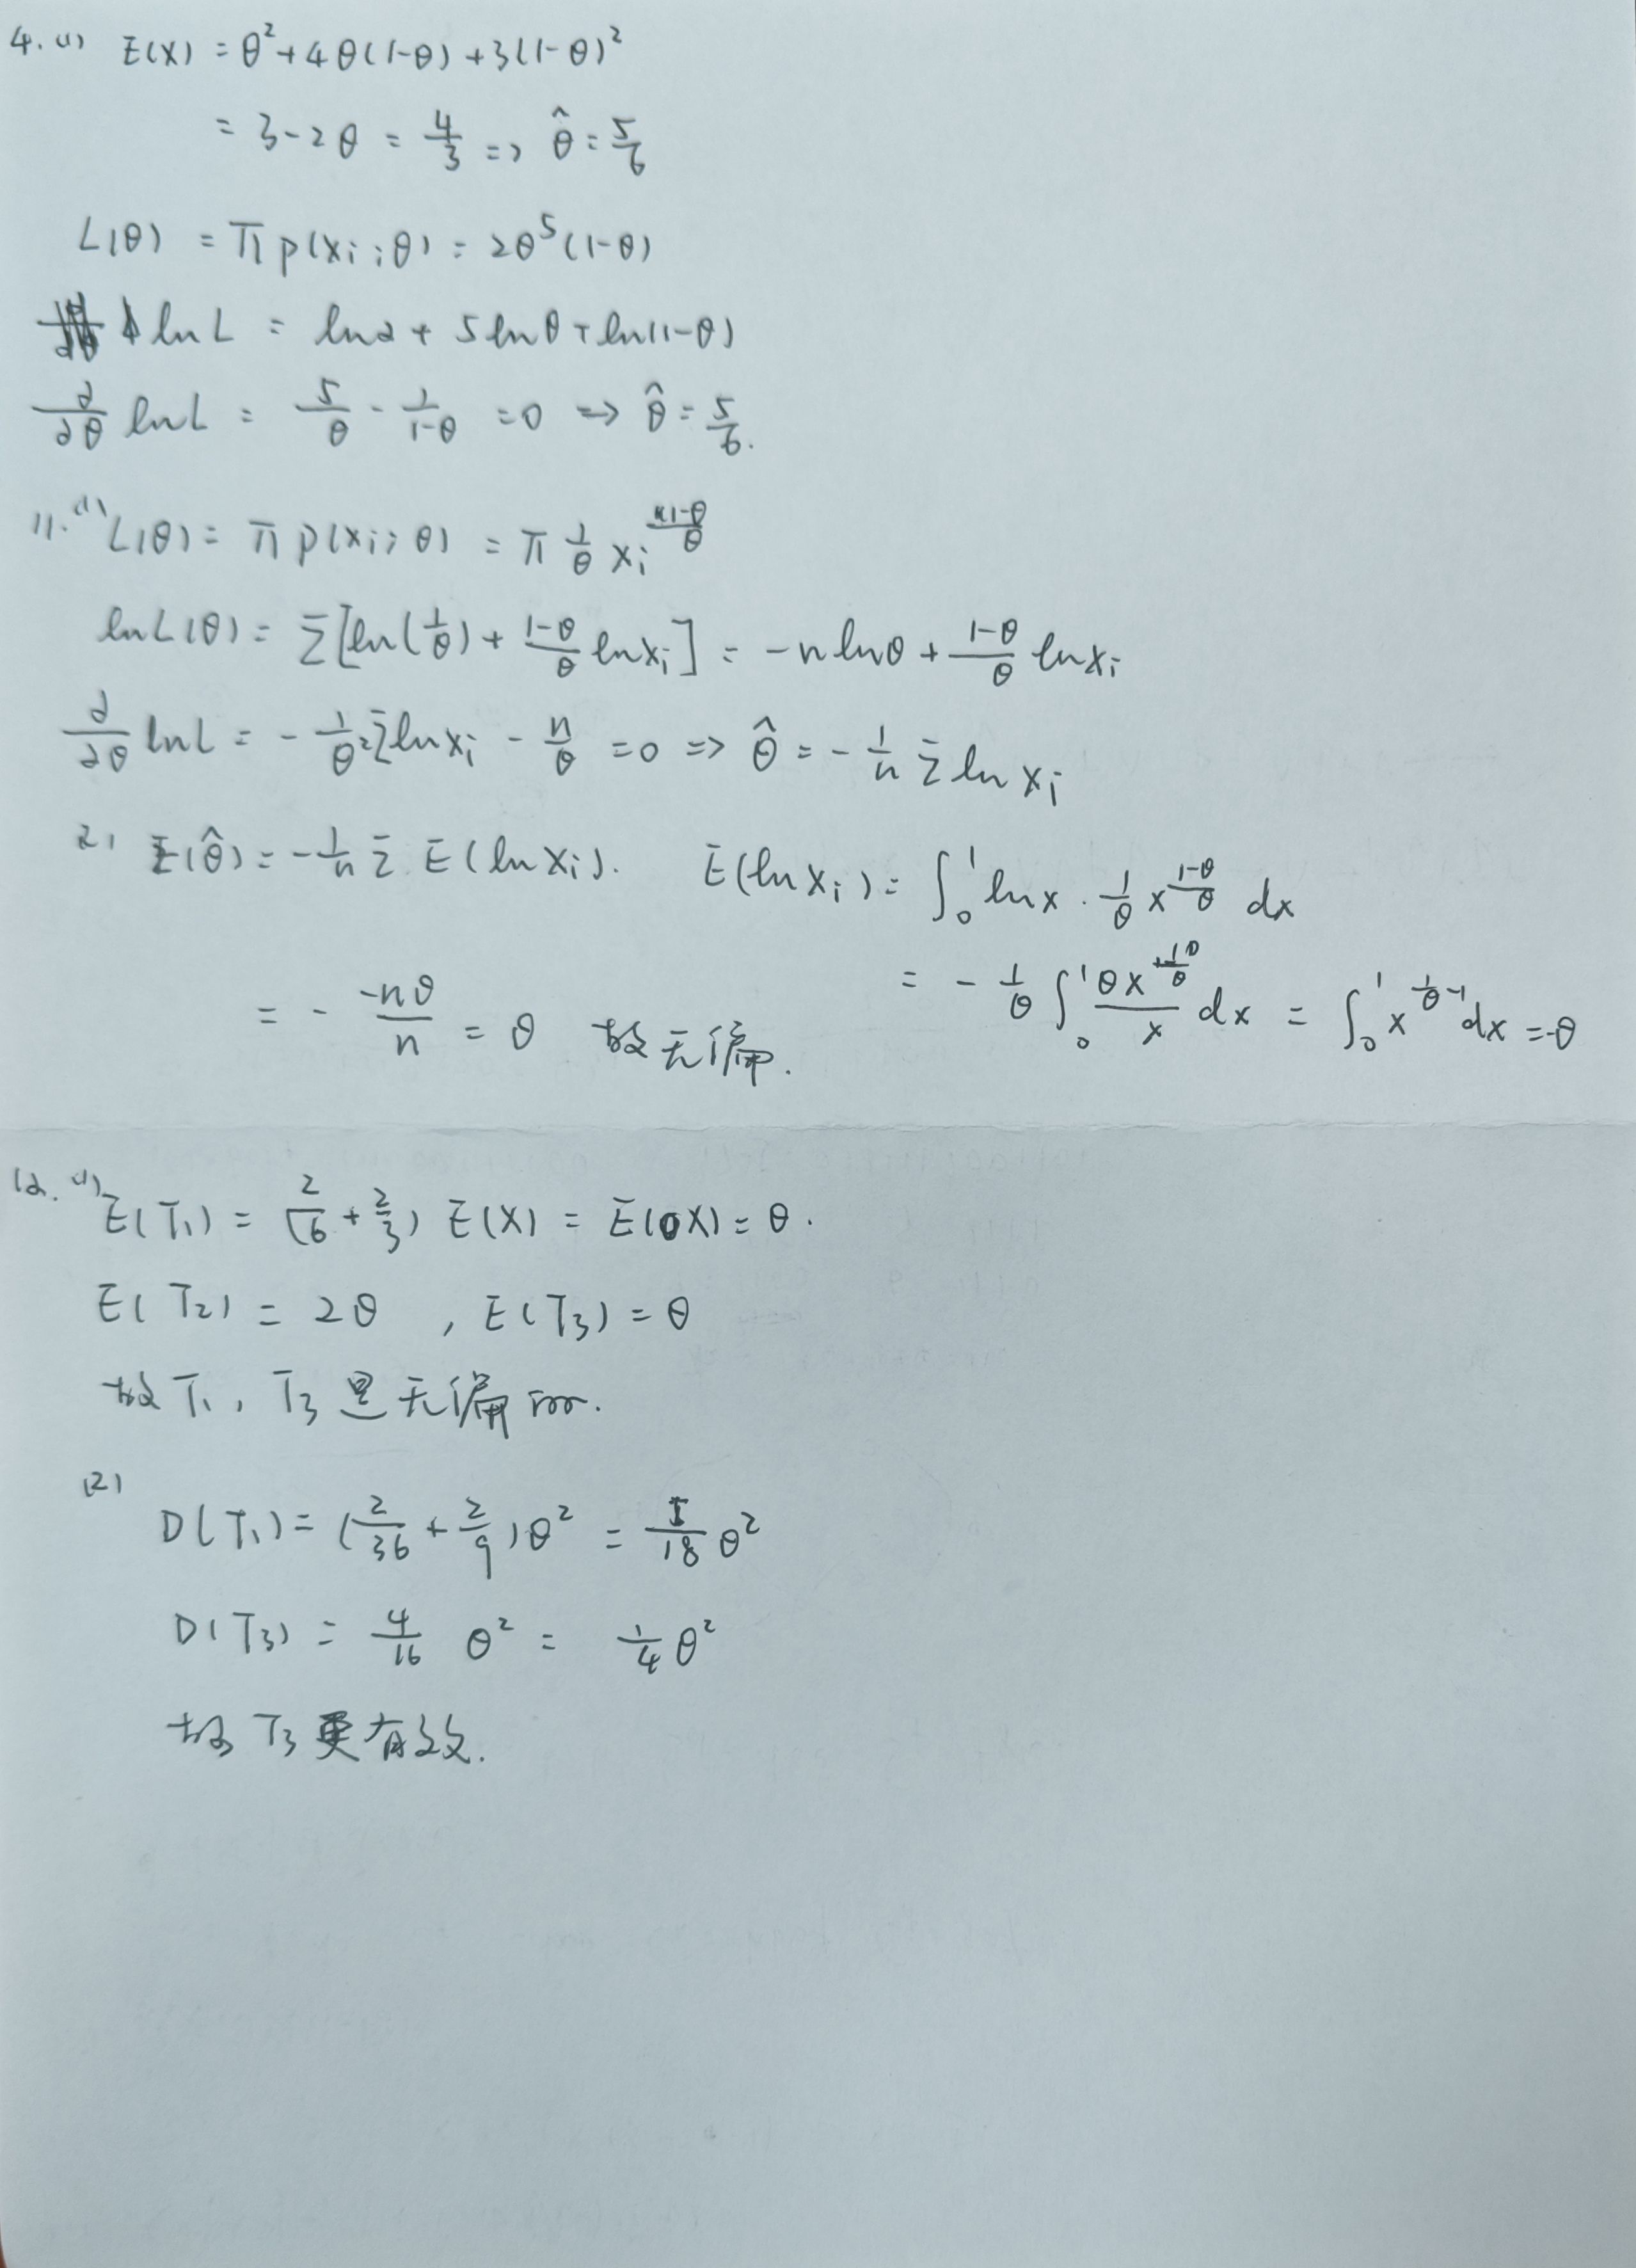 4. (1) E(X) = θ²+4θ(1-θ)+3(1-θ)²
= 3-2θ = 4/3 => θ̂ = 5/6
L(θ) = Π p(xi;θ) = 2θ⁵(1-θ)
ln L = ln2 + 5lnθ + ln(1-θ)
∂/∂θ lnL = 5/θ - 1/(1-θ) = 0 => θ̂ = 5/6.
11. (1) L(θ) = Π p(xi;θ) = Π 1/θ xi^((1-θ)/θ)
lnL(θ) = Σ[ln(1/θ) + (1-θ)/θ lnxi] = -nlnθ + (1-θ)/θ lnxi
∂/∂θ lnL = -1/θ² Σlnxi - n/θ = 0 => θ̂ = -1/n Σ ln xi
2) E(θ̂) = -1/n Σ E(ln xi). E(ln xi) = ∫₀¹ lnx · 1/θ x^((1-θ)/θ) dx
= - -nθ/n = θ 故无偏. = -1/θ ∫₀¹ θx^(1/θ)/x dx = ∫₀¹ x^(1/θ-1) dx = -θ
12. (1) E(T₁) = (2/6 + 2/3) E(X) = E(X) = θ.
E(T₂) = 2θ , E(T₃) = θ
故 T₁, T₃ 是无偏的.
(2)
D(T₁) = (2/36 + 2/9)θ² = 5/18 θ²
D(T₃) = 4/16 θ² = 1/4 θ²
故 T₃ 更有效.